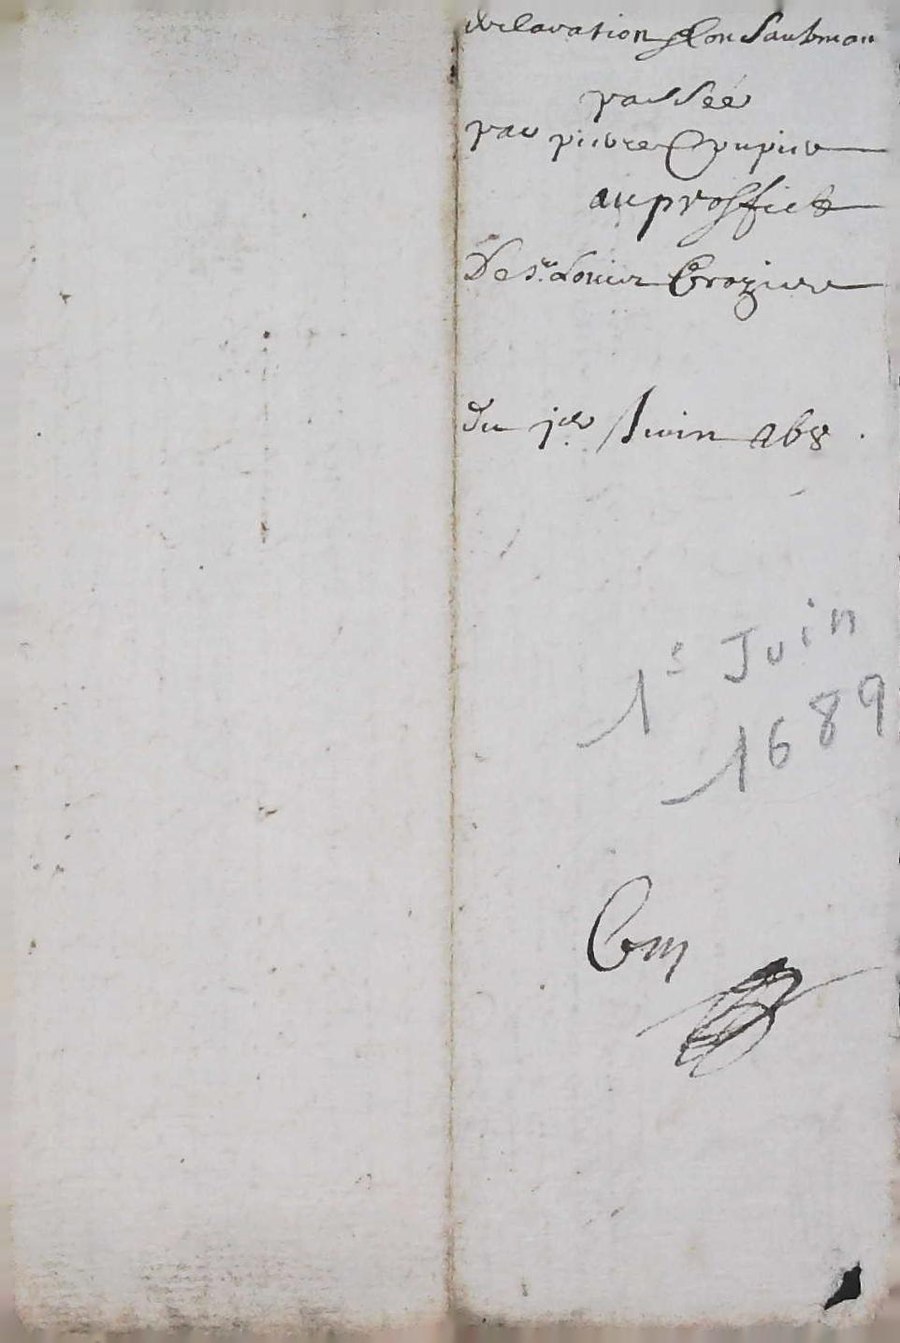 declaration et consantemen
passée
par pierre Crupier
au proffict
De sr. Louis Crozier
du jer Juin 168
1e Juin
1689